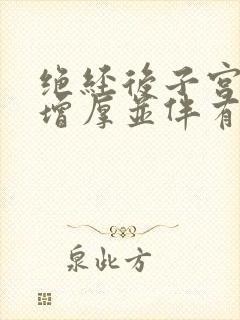 绝经後子宫
增厚並伴有
泉此方